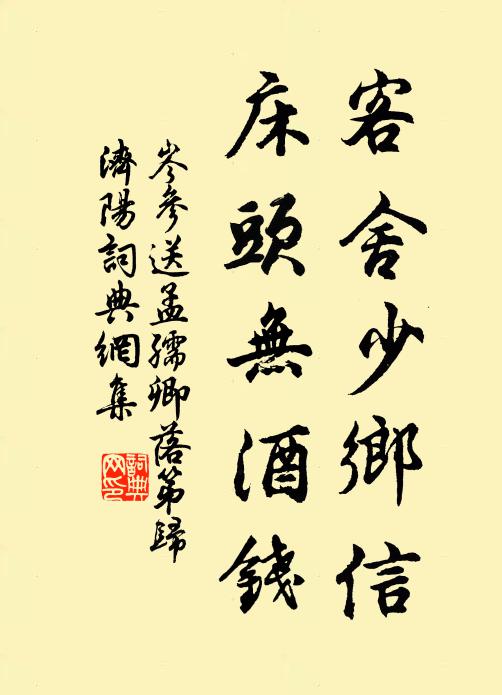 客舍少鄉信
床頭無酒錢
岑參送孟孺卿落第歸
濟陽詞典網集
詞典
网印